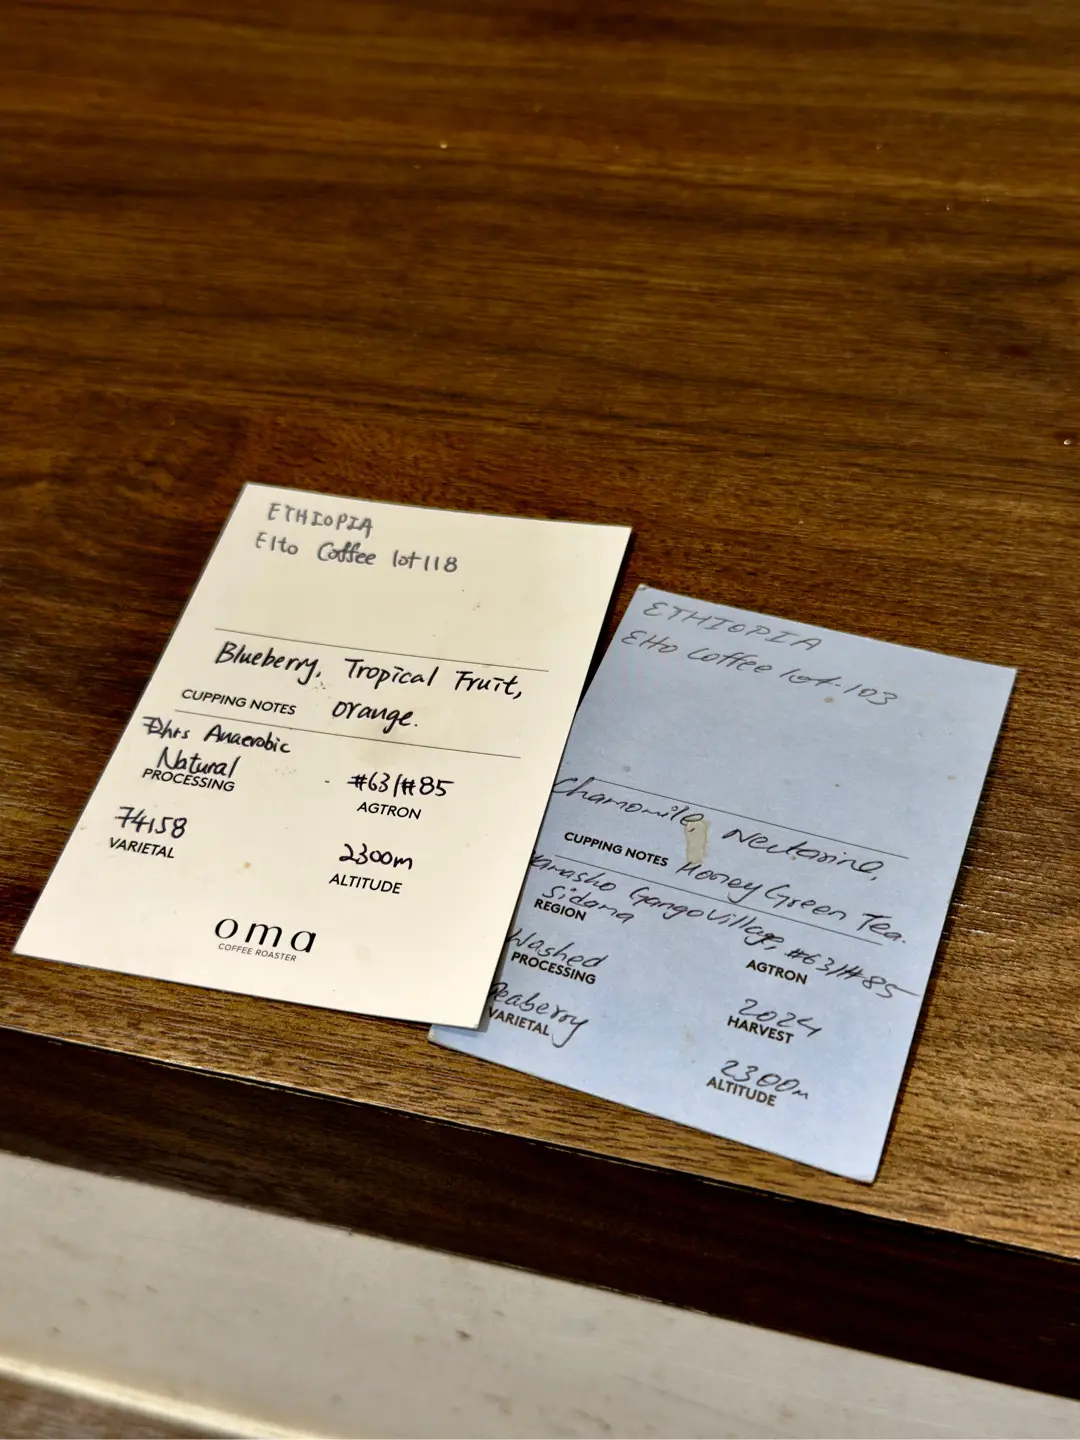 ETHIOPIA
Elto Coffee lot 118
Blueberry, Tropical Fruit,
CUPPING NOTES orange.
Anaerobic
Natural
PROCESSING
#63/#85
AGTRON
74158
VARIETAL
2300m
ALTITUDE
oma
COFFEE ROASTER
ETHIOPIA
Elto Coffee lot.103
Chamomile, Nectarine,
CUPPING NOTES Honey Green Tea.
Gango Village,
Sidama
REGION
#63/#85
AGTRON
Washed
PROCESSING
2024
HARVEST
Peaberry
VARIETAL
2300m
ALTITUDE